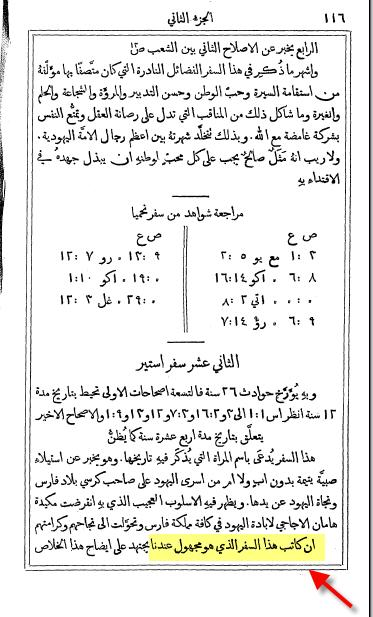 ١١٦ الجزء الثاني
الرابع يخبر عن الاصلاح الثاني بين الشعب ص١٣
واشهر ما ذُكِر في هذا السفر الفضائل النادرة التي كان متّصفًا بها مؤلّفهُ
من استقامة السيرة وحبّ الوطن وحسن التدبير والمروّة والشجاعة والحلم
والغيرة وما شاكل ذلك من المناقب التي تدل على رصانة العقل وتمتّع النفس
بشركة غامضة مع الله. وبذلك تخلّد شهرتهُ بين اعظم رجال الامّة اليهودية.
ولا ريب انهُ مَثَلٌ صالحٌ يجب على كل محبّ لوطنهِ ان يبذل جهدهُ في
الاقتداء بهِ
مراجعة شواهد من سفر نحميا
ص ع ص ع
٢ : ١ مع يو ٥ : ٢ ٩ : ١٣ رو ٧ : ١٢
٨ : ٦ اكو ١٤ : ١٦ ١٩ اكو ١٠ : ١
اتي ٢ : ٨ ٢٩ غل ٣ : ١٢
٩ : ٦ رؤ ١٤ : ٧
الثاني عشر سفر استير
وبهِ يُؤرَّخ حوادث ٢٦ سنة فالتسعة اصحاحات الاولى تحيط بتاريخ مدة
١٢ سنة انظر اس ١ : ١ الى ٣ و٢ : ١٦ و٣ : ٧ و١٢ و١٣ و٩ : ١ والاصحاح الاخير
يتعلَّق بتاريخ مدة اربع عشرة سنة كما يُظَنُّ
هذا السفر يُدعَى باسم المراة التي يُذكَر فيهِ تاريخها. وهو يخبر عن استيلاء
صبيَّة يتيمة بدون اسم ولا امر من اسرى اليهود على صاحب كرسي بلاد فارس
ونجاة اليهود عن يدها. ويظهر فيهِ الاسلوب العجيب الذي بهِ انقرضت مكيدة
هامان الاجاجي لابادة اليهود في كافة مملكة فارس وتحوّلت الى نجاحهم وكرامتهم
ان كاتب هذا السفر الذي هو مجهول عندنا يجتهد على ايضاح هذا الخلاص